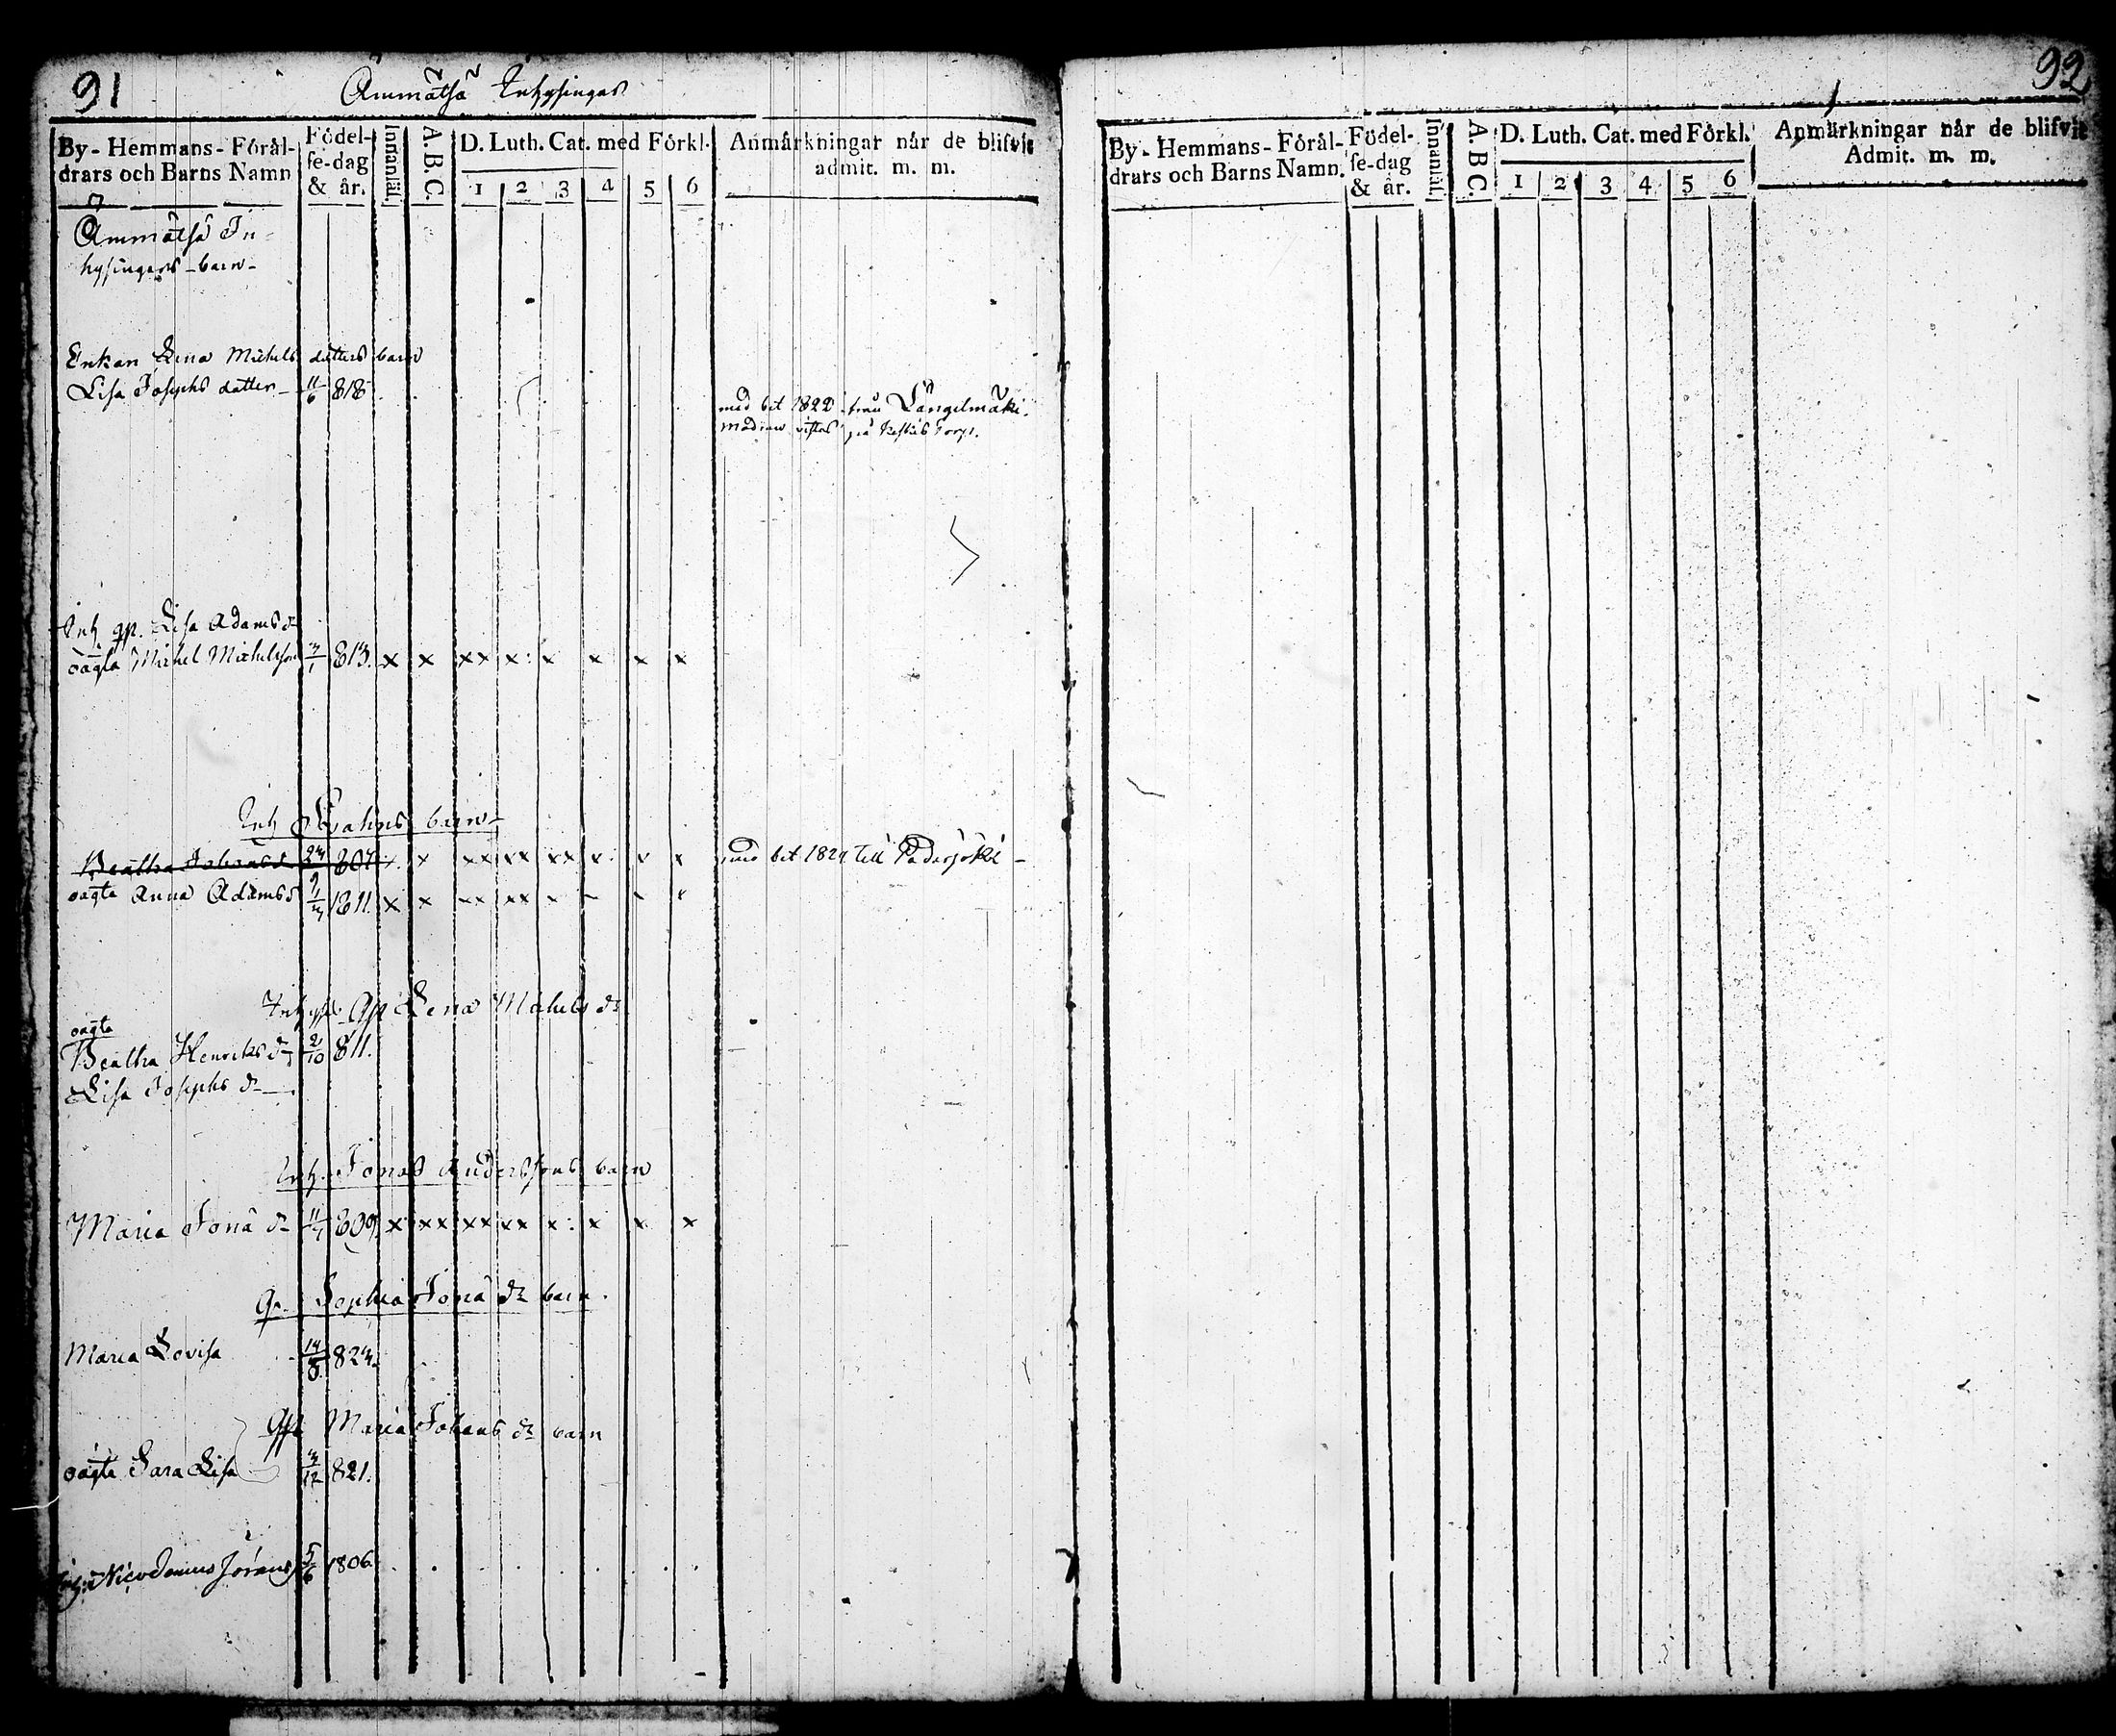 91
Ämmätsä Inhysingar
By-Hemmans-Förål-
drars och Barns Namn
Födel-
se-dag
& år.
Innanläs.
A. B. C.
D. Luth. Cat. med Förkl.
1 2 3 4 5 6
Anmårkningar når de blifvit
admit. m. m.
Ämmätsä In-
hysingars barn
Enkan Lena Michels dotters barn
Lisa Josephs dotter 11/6 818
med bet 1822 från Längelmäki.
modren vistas på Torp.
Inh. qp. Lisa Adams dr
oägta Michel Michelsson 3/1 813. x x xx x x x x x
Inh Svahns barn
Beatha Johans d 24/9 807. x x xx xx xx x x x bet 1824 till Padasjoki
oägta Anna Adams d 1811. x x xx xx x
Inhys. Qp Lena Michels dr
oägta
Beatha Henriks dr 2/10 811.
Lisa Josephs dr
Inh. Jonas Anderssons barn
Maria Jona dr 11/7 809 x xx xx xx x x x x
Qp. Sophia Jona dr barn.
Maria Lovisa 14/8 824.
Qp Maria Johans dr barn
oägta Sara Lisa 3/12 821.
Nicodemus Jörans 5/6 1806
92
By-Hemmans-Förål-
drars och Barns Namn.
Födel-
se-dag
& år.
Innanläs.
A. B. C.
D. Luth. Cat. med Förkl.
1 2 3 4 5 6
Anmärkningar når de blifvit
Admit. m. m.